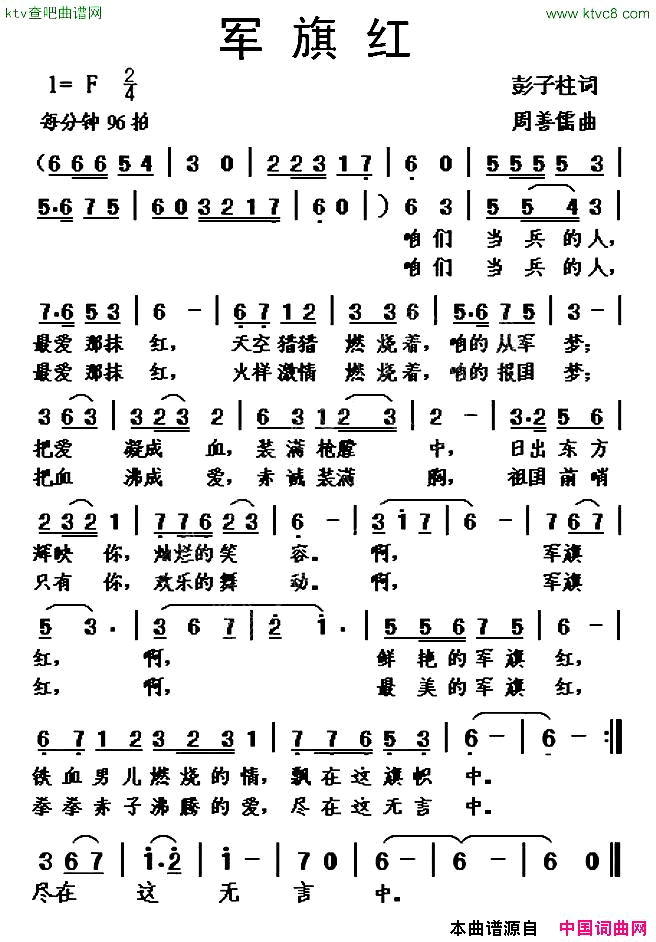 ktv查吧曲谱网
www.ktvc8.com
军旗红
1= F 2/4
彭子柱词
每分钟 96 拍
周善儒曲
( 6 6 6 5 4 | 3 0 | 2 2 3 1 7 | 6 0 | 5 5 5 5 3 |
5. 6 7 5 | 6 0 3 2 1 7 | 6 0 ) 6 3 | 5 5 4 3 |
咱们 当兵的人,
咱们 当兵的人,
7. 6 5 3 | 6 - | 6 7 1 2 | 3 3 6 | 5. 6 7 5 | 3 - |
最爱那抹红, 天空猎猎燃烧着, 咱的从军梦;
最爱那抹红, 火样激情燃烧着, 咱的报国梦;
3 6 3 | 3 2 3 2 | 6 3 1 2 3 | 2 - | 3. 2 5 6 |
把爱凝成血, 装满枪膛中, 日出东方
把血沸成爱, 赤诚装满胸, 祖国前哨
2 3 2 1 | 7 7 6 2 3 | 6 - | 3 i 7 | 6 - | 7 6 7 |
辉映你, 灿烂的笑容。啊, 军旗
只有你, 欢乐的舞动。啊, 军旗
5 3. | 3 6 7 | 2 i. | 5 5 6 7 5 | 6 - |
红, 啊, 鲜艳的军旗红,
红, 啊, 最美的军旗红,
6 7 1 2 3 2 3 1 | 7 7 6 5 3 | 6 - | 6 - :||
铁血男儿燃烧的情, 飘在这旗帜中。
拳拳赤子沸腾的爱, 尽在这无言中。
3 6 7 | i. 2 | i - | 7 0 | 6 - | 6 - | 6 0 ||
尽在这无言红。
本曲谱源自 中国词曲网